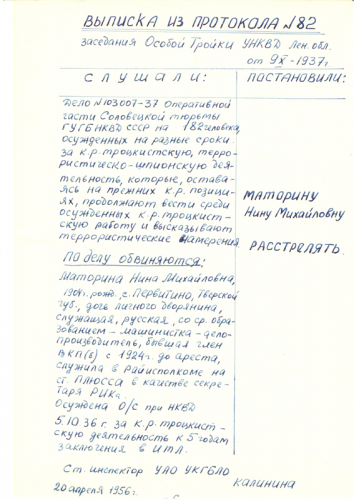 ВЫПИСКА ИЗ ПРОТОКОЛА №82
заседания Особой Тройки УНКВД Лен. обл.
от 9/X-1937г.
СЛУШАЛИ:
ПОСТАНОВИЛИ:
Дело №103007-37 Оперативной
части Соловецкой тюрьмы
ГУГБ НКВД СССР на 182 человека,
осужденных на разные сроки
за к.р. троцкистскую, терро-
ристическо-шпионскую дея-
тельность, которые, остава-
ясь на прежних к.р. позици-
ях, продолжают вести среди
осужденных к.р. троцкист-
скую работу и высказывают
террористические намерения.
МАТОРИНУ
Нину Михайловну
РАССТРЕЛЯТЬ.
По делу обвиняются:
Маторина Нина Михайловна,
1904г. рожд., с. Первитино, Тверской
губ., дочь личного дворянина,
служащая, русская, со ср. обра-
зованием – машинистка – дело-
производитель, бывшая член
ВКП(б) с 1924г. до ареста,
служила в Райисполкоме на
ст. ПЛЮССА в качестве секре-
таря РИКа.
Осуждена О/С при НКВД
5.10.36г. за к.р. троцкист-
скую деятельность к 5 годам
заключения в ИТЛ.
Ст. инспектор УАО УКГБЛО
Калинина
20 апреля 1956г.